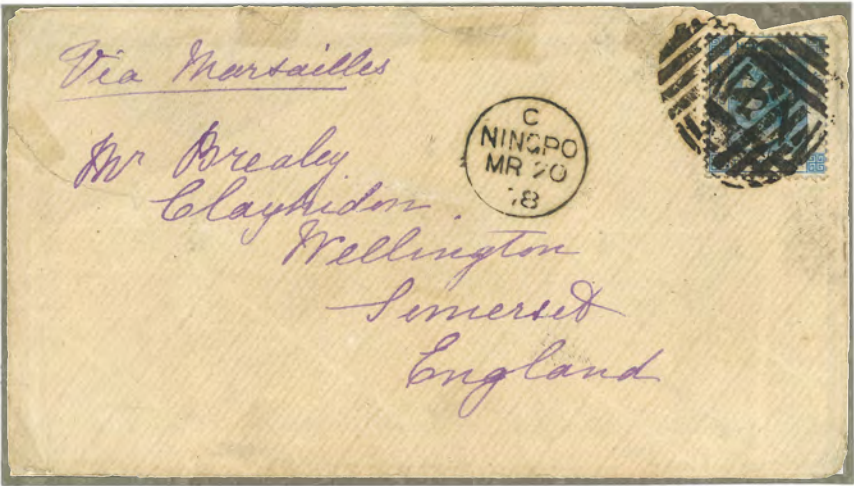 Via Marsailles
C
NINGPO
MR 20
78
Mr Brealey
Clayhidon.
Wellington
Somerset
England